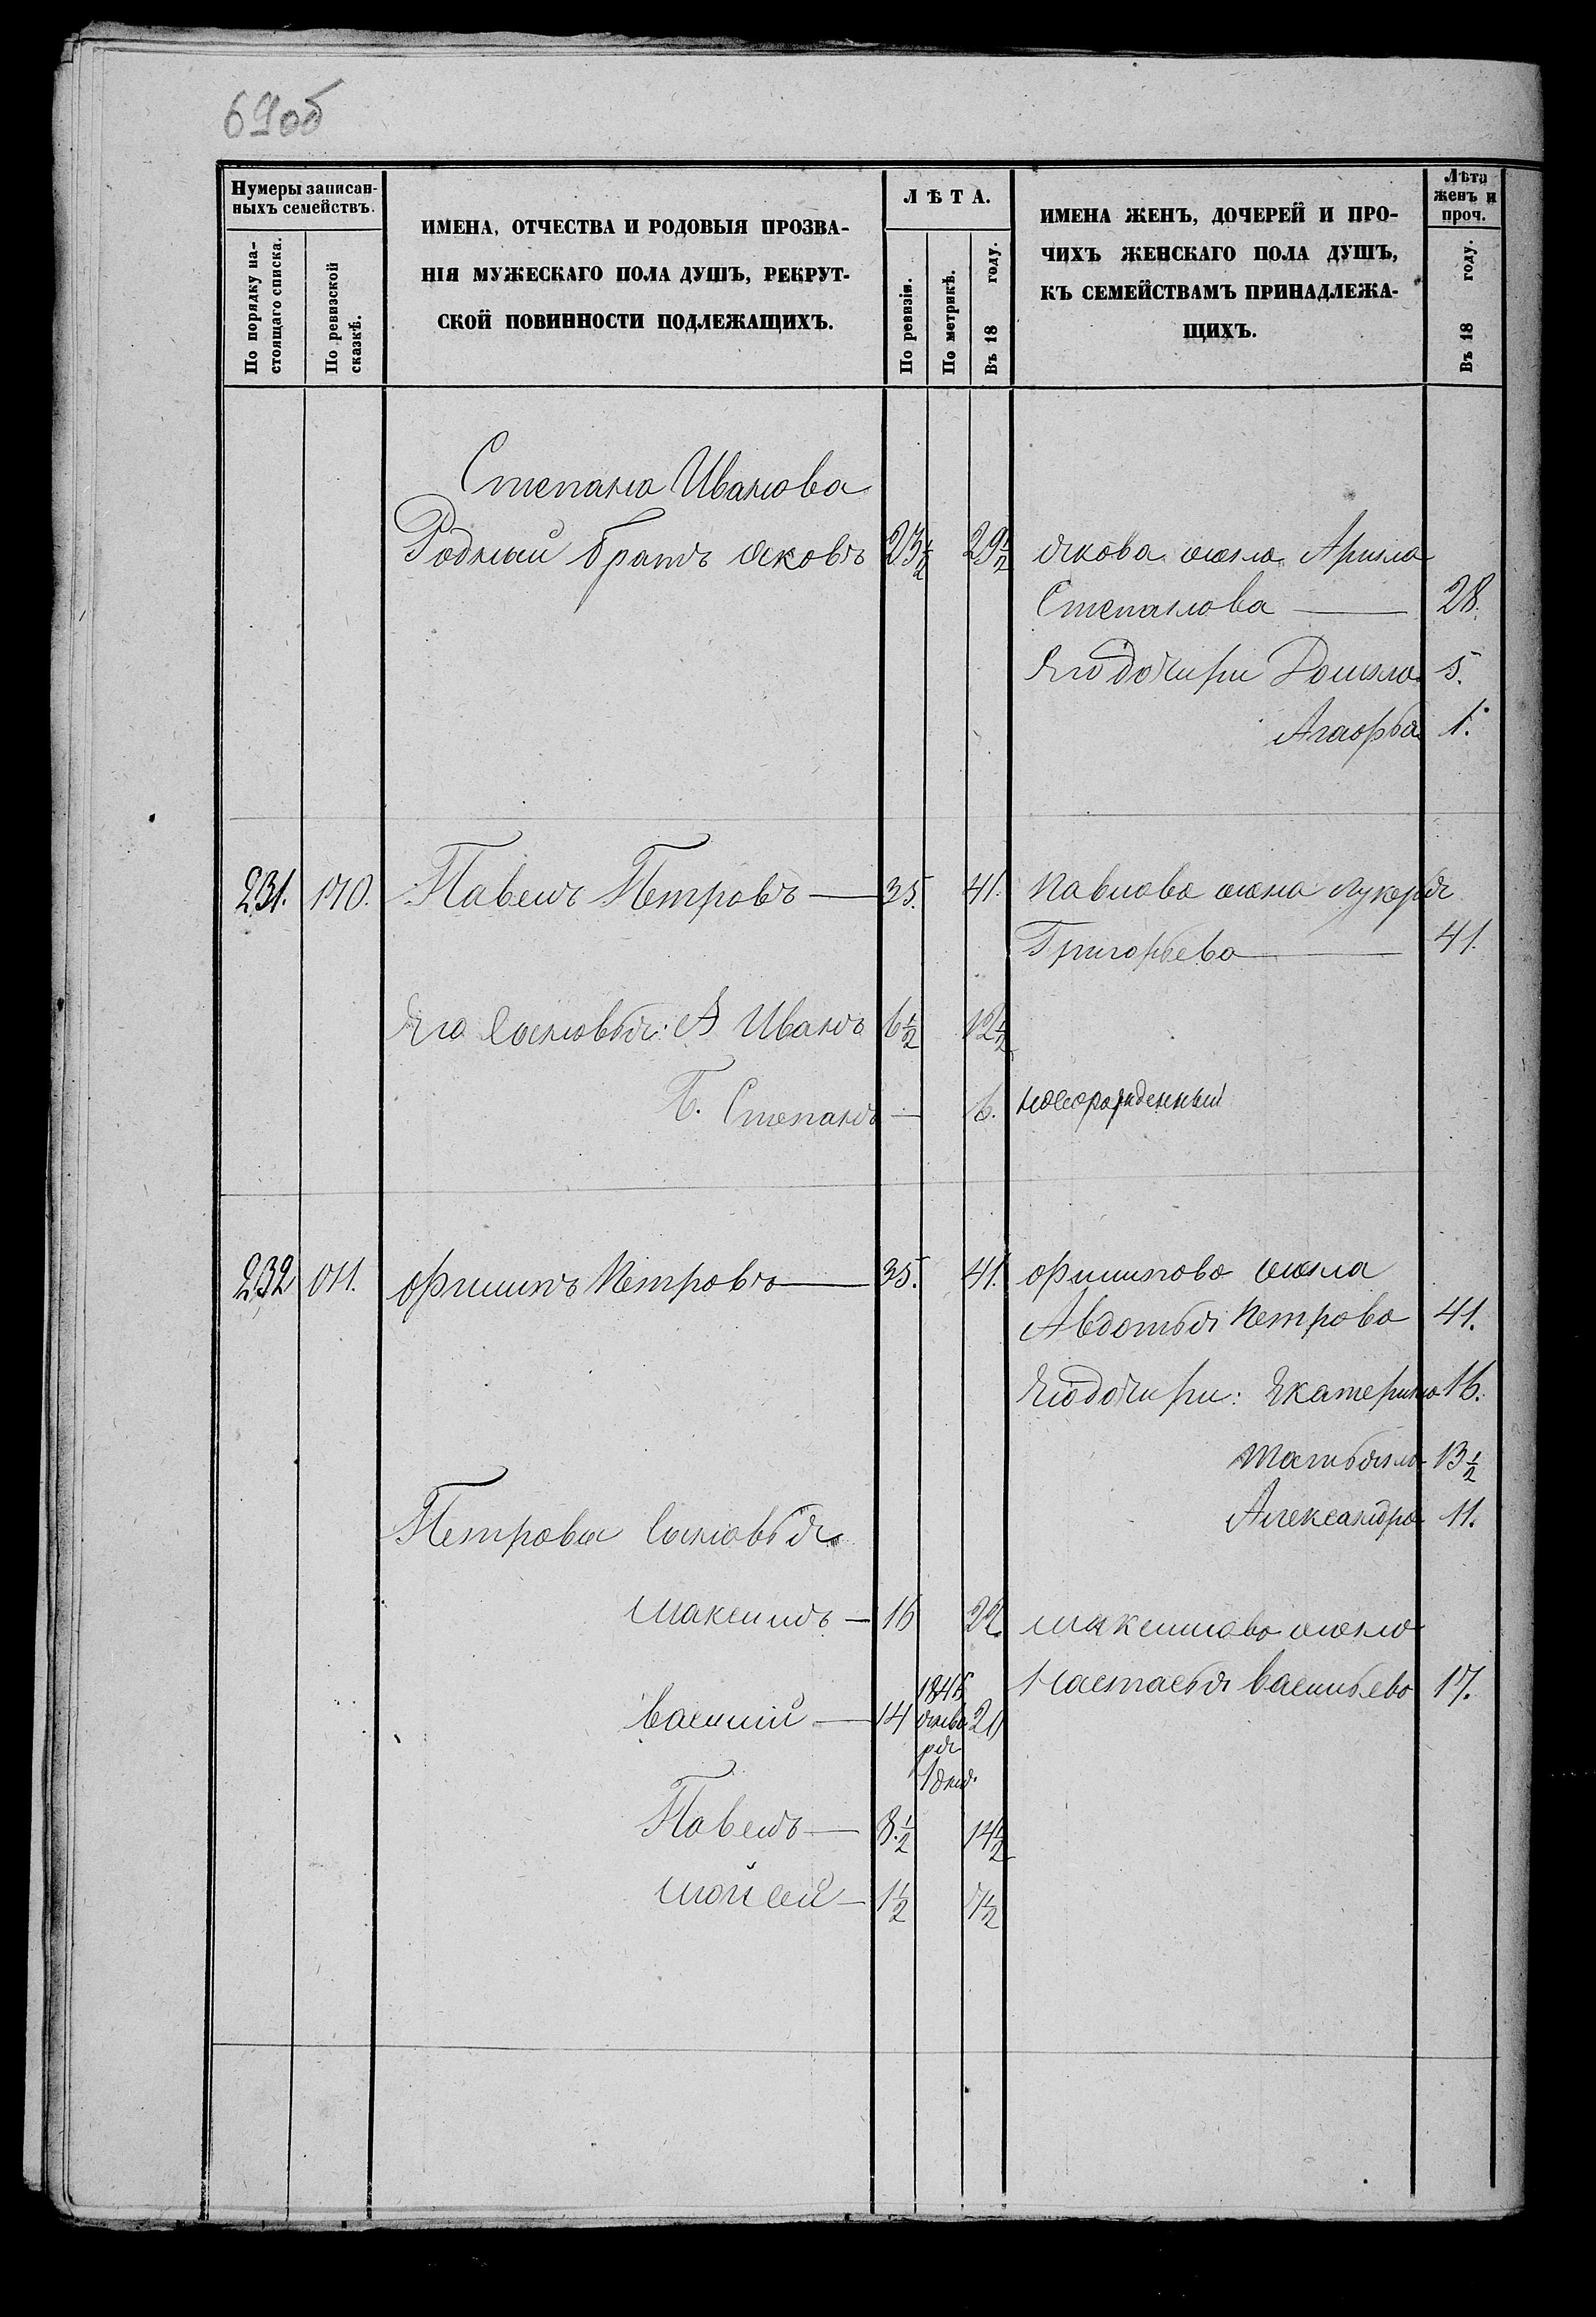 69об
Нумеры записан-
ныхъ семействъ.
По порядку на-
стоящаго списка.
По ревизской
сказкѣ.
ИМЕНА, ОТЧЕСТВА И РОДОВЫЯ ПРОЗВА-
НІЯ МУЖЕСКАГО ПОЛА ДУШЪ, РЕКРУТ-
СКОЙ ПОВИННОСТИ ПОДЛЕЖАЩИХЪ.
ЛѢТА.
По ревизіи.
По метрикѣ.
Въ 18 году.
ИМЕНА ЖЕНЪ, ДОЧЕРЕЙ И ПРО-
ЧИХЪ ЖЕНСКАГО ПОЛА ДУШЪ,
КЪ СЕМЕЙСТВАМЪ ПРИНАДЛЕЖА-
ЩИХЪ.
Лѣта
женъ и
проч.
Въ 18 году.
Степана Иванова
Родный братъ Яковъ 23½ 29½ Якова жена Арина
Степанова — 28.
Его дочери Домна 5.
Агафья 1.
231. 170. Павелъ Петровъ — 35. 41. Павлова жена Лукерья
Григорьева — 41.
Его Сыновья: А Иванъ 6½ 12½
Б. Степанъ — 6. новорожденный
232 Филипъ Петровъ — 35. 41. Филипова жена
Авдотья Петрова 41.
Его дочери: Екатерина 16.
Татьяна 13½
Александра 11.
Петровы Сыновья
Максимъ — 16 22. Максимова жена
Настасья Васильева 17.
Василій — 14 1846 января 1 дня. 20
Павелъ — 8½ 14½
Мойсей — 1½ 7½